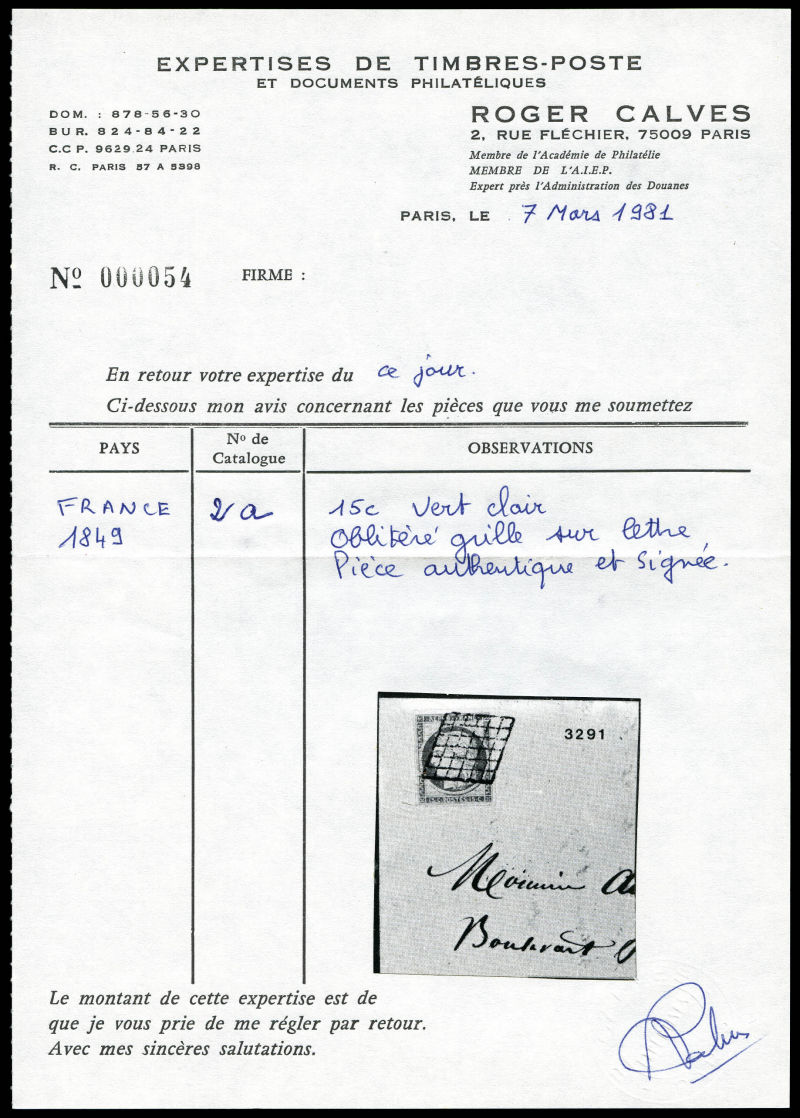 EXPERTISES DE TIMBRES-POSTE
ET DOCUMENTS PHILATÉLIQUES
DOM. : 878-56-30
BUR. 824-84-22
C.C P. 9629.24 PARIS
R. C. PARIS 57 A 5398
ROGER CALVES
2, RUE FLÉCHIER, 75009 PARIS
Membre de l'Académie de Philatélie
MEMBRE DE L'A.I.E.P.
Expert près l'Administration des Douanes
PARIS, LE 7 Mars 1981
Nº 000054 FIRME :
En retour votre expertise du ce jour.
Ci-dessous mon avis concernant les pièces que vous me soumettez
PAYS
Nº de
Catalogue
OBSERVATIONS
FRANCE
1849
2a
15c vert clair
Oblitéré grille sur lettre,
Pièce authentique et signée.
3291
15.C.POSTES.15.C
Boulevart
Le montant de cette expertise est de
que je vous prie de me régler par retour.
Avec mes sincères salutations.
Calves